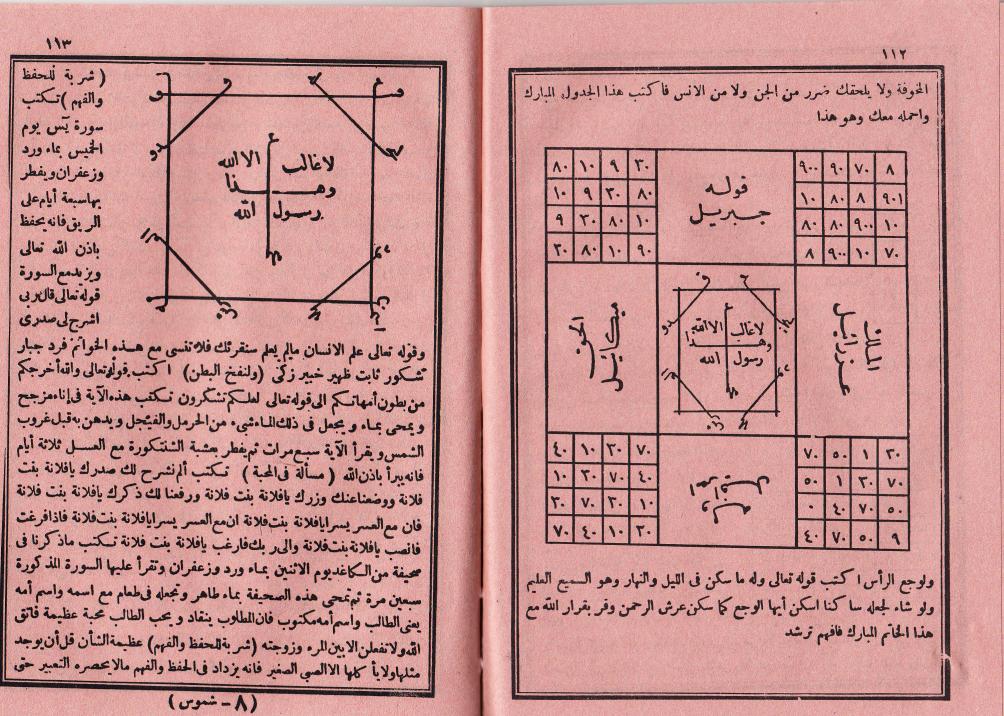 ١١٢
المخوفة ولا يلحقك ضرر من الجن ولا من الانس فاكتب هذا الجدول المبارك
واحمله معك وهو هذا
٨٠ ١٠ ٩ ٢٠
١٠ ٩ ٢٠ ٨٠
٩ ٢٠ ٨٠ ١٠
٢٠ ٨٠ ١٠ ٩٠
قوله
جبريل
٩٠٠ ٩٠ ٧٠ ٨
١٠ ٨٠ ٨ ٩٠١
٨٠ ٨٠ ٩٠٠ ١٠
٨ ٩٠٠ ١٠ ٧٠
ميكائيل
لا غالب الا الله
وهــذا
رسول الله
الملك
عزرائيل
٤٠ ١٠ ٢٠ ٧٠
١٠ ٢٠ ٧٠ ٤٠
٢٠ ٧٠ ٢٠ ١٠
٧٠ ٤٠ ١٠ ٢٠
٧٠ ٥٠ ١ ٢٠
٥٠ ١ ٢٠ ٧٠
٠ ٤٠ ٧٠ ٥٠
٤٠ ٧٠ ٥٠ ٩
ولوجع الرأس اكتب قوله تعالى وله ما سكن فى الليل والنهار وهو السميع العليم
ولو شاء لجعله ساكنا اسكن أيها الوجع كما سكن عرش الرحمن وقر بقرار الله مع
هذا الخاتم المبارك فافهم ترشد
١١٣
(شربة للحفظ
والفهم) تكتب
سورة يٓس يوم
الخميس بماء ورد
وزعفران ويفطر
بها سبعة أيام على
الريق فانه يحفظ
باذن الله تعالى
ويزيد مع السورة
قوله تعالى قال ربى
اشرح لى صدرى
لا غالب الا الله
وهــذا
رسول الله
وقوله تعالى علم الانسان مالم يعلم سنقرئك فلا تنسى مع هــذه الخواتم فرد جبار
شكور ثابت ظهير خبير زكى (ولنفخ البطن) اكتب قوله تعالى والله أخرجكم
من بطون أمهاتكم الى قوله تعالى لعلكم تشكرون تكتب هذه الآية فى إناء مزجج
ويمحى بماء ويجعل فى ذلك الماء شىء من الحرمل والفيجل ويدهن به قبل غروب
الشمس ويقرأ الآية سبع مرات ثم يفطر بعشبة الشنتكورة مع العسل ثلاثة أيام
فانه يبرأ باذن الله (مسألة فى المحبة) تكتب ألم نشرح لك صدرك يافلانة بنت
فلانة ووضعنا عنك وزرك يافلانة بنت فلانة ورفعنا لك ذكرك يافلانة بنت فلانة
فان مع العسر يسرا يافلانة بنت فلانة ان مع العسر يسرا يافلانة بنت فلانة فاذا فرغت
فانصب يافلانة بنت فلانة والى ربك فارغب يافلانة بنت فلانة تكتب ماذكرنا فى
صحيفة من الكاغد يوم الاثنين بماء ورد وزعفران وتقرأ عليها السورة المذكورة
سبعين مرة ثم تمحى هذه الصحيفة بماء طاهر وتجعله فى طعام مع اسمه واسم أمه
يعنى الطالب واسم أمه مكتوب فان المطلوب ينقاد ويحب الطالب محبة عظيمة فاتق
الله ولا تفعلن الا بين المرء وزوجته (شربة للحفظ والفهم) عظيمة الشأن قل أن يوجد
مثلها ولا يأ كلها الا الصبى الصغير فانه يزداد فى الحفظ والفهم مالا يحصره التعبير حتى
(٨ - شموس)